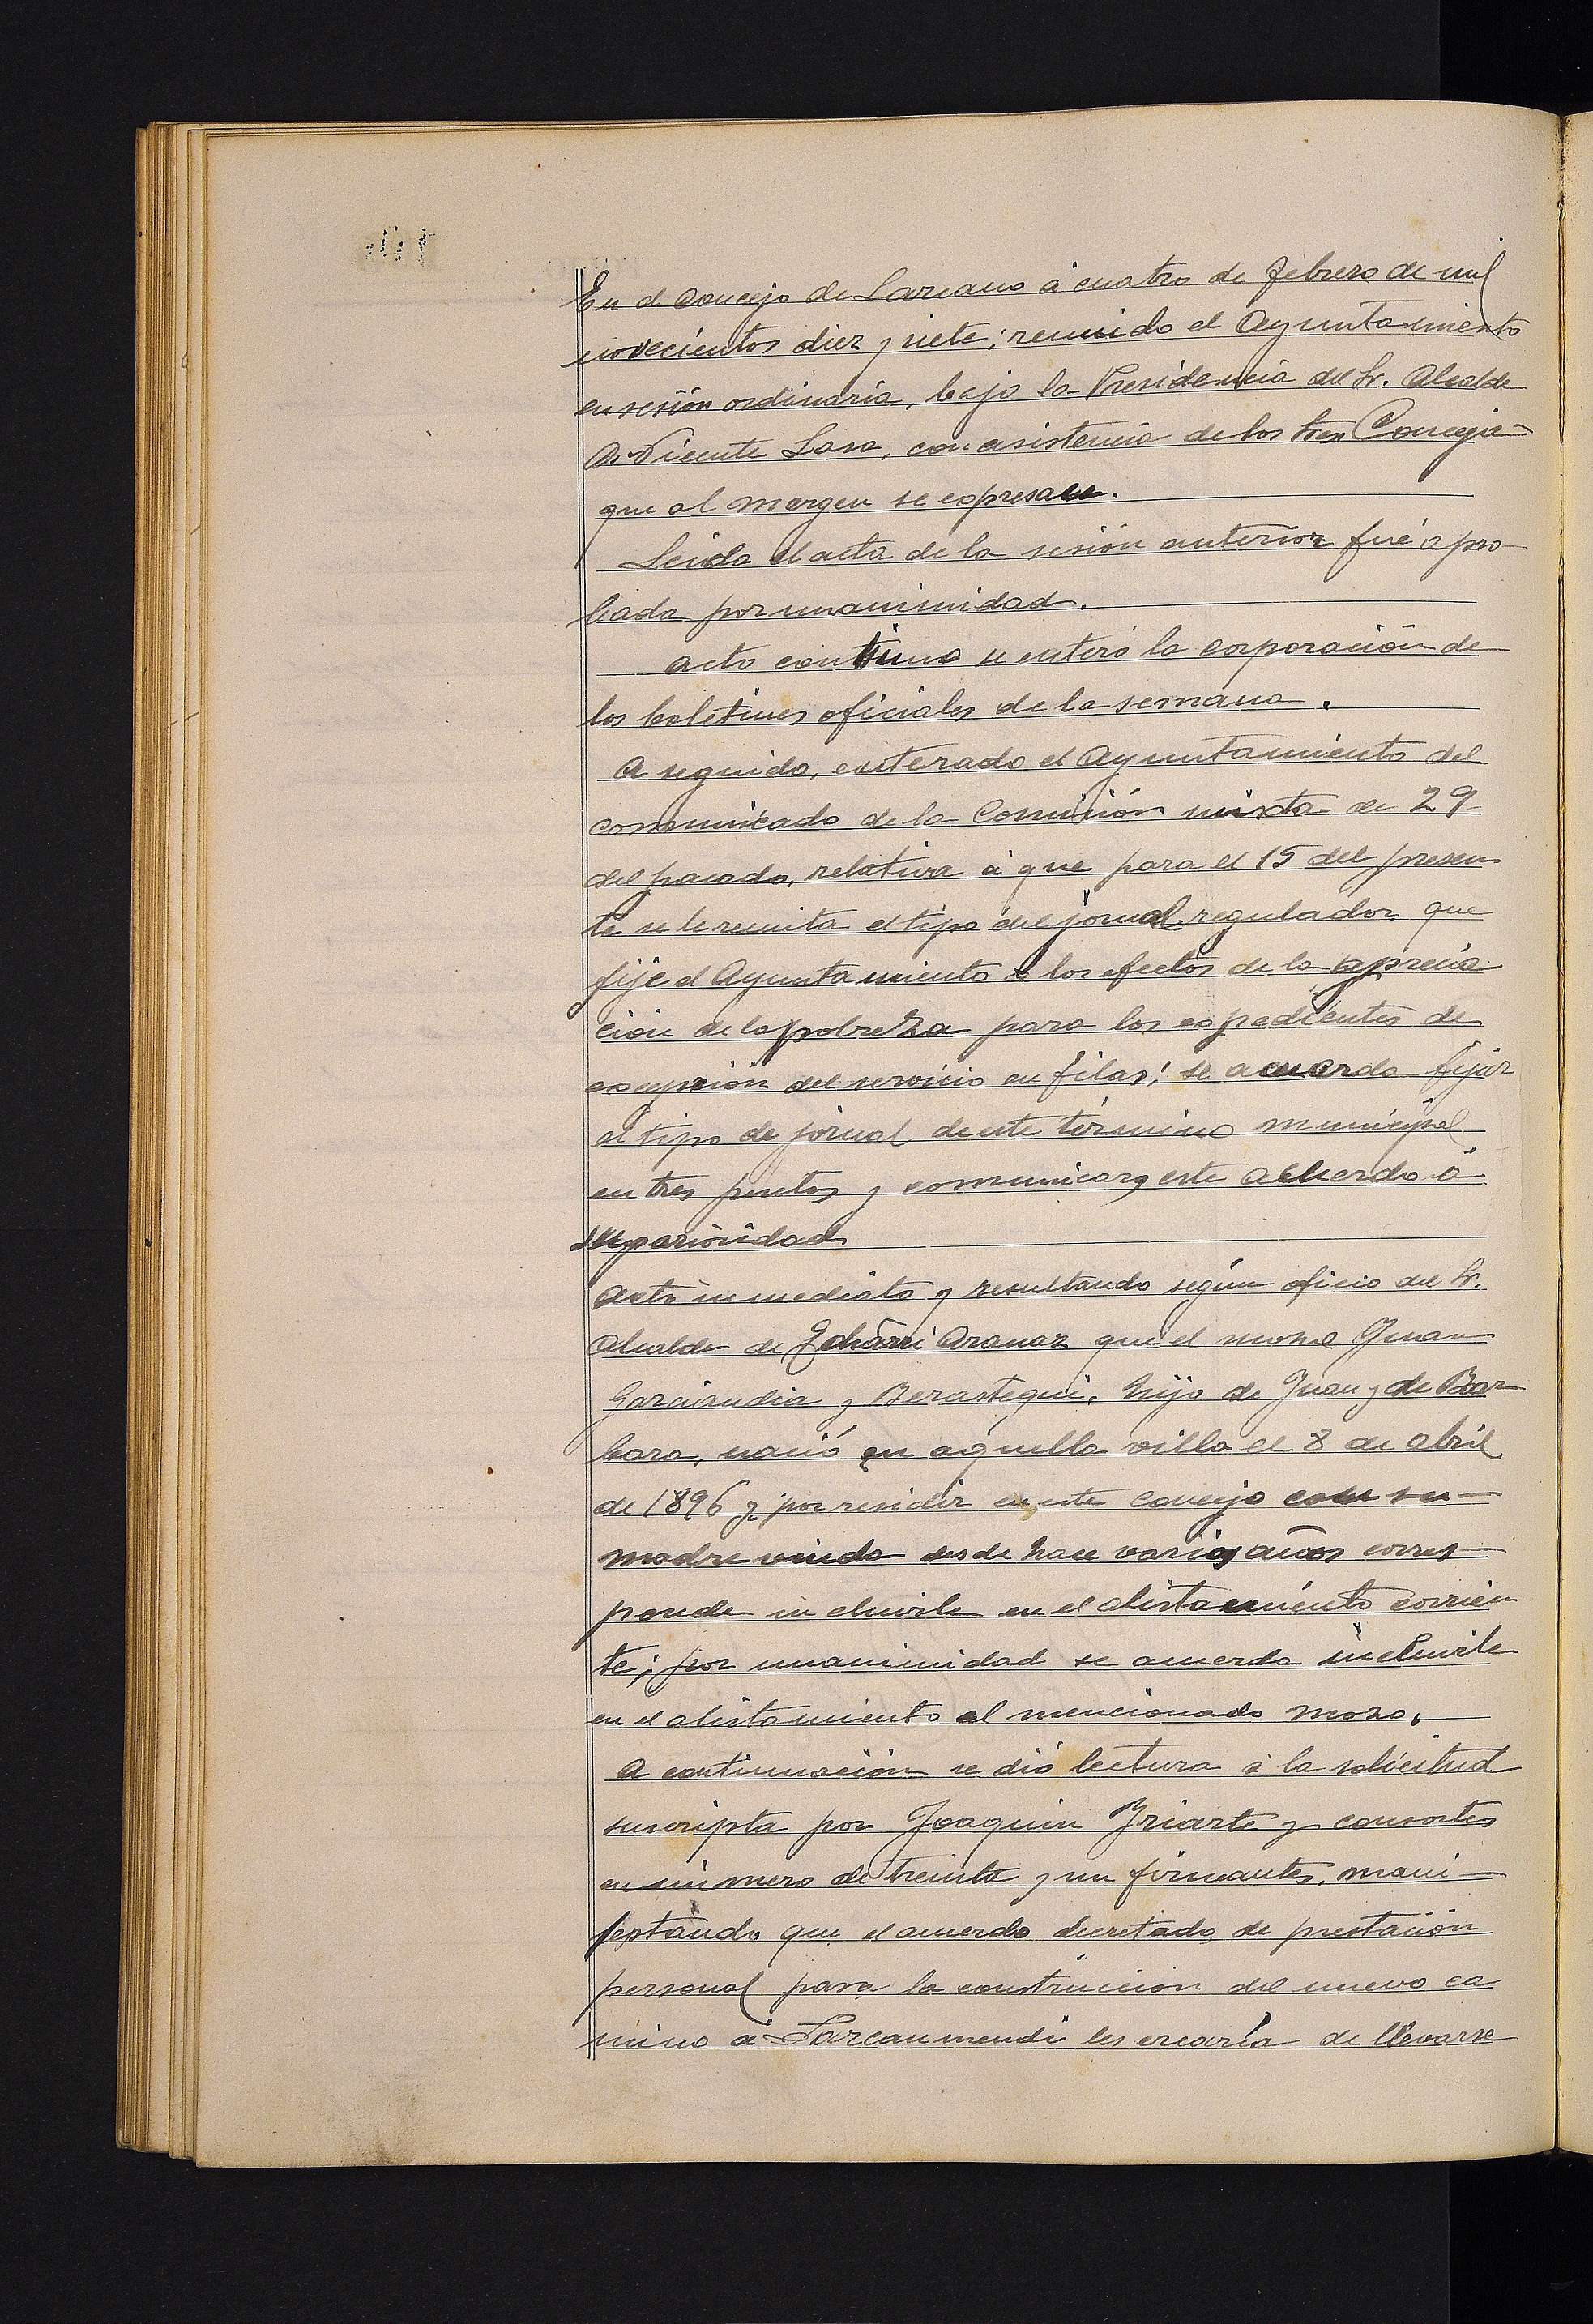 En el Concejo de Larcano á cuatro de febrero de mil
novecientos diez y siete; reunido el Ayuntamiento
en sesión ordinaria, bajo la Presidencia del Sr. Alcalde
D. Vicente Lasa, con asistencia de los tres Conceja-
que al margen se expresan.
Leida el acta de la sesión anterior fué apro-
bada por unanimidad.
Acto continuo se enteró la corporación de
los boletines oficiales de la semana.
A seguido, enterado el Ayuntamiento del
comunicado de la Comisión mixta de 29
del pasado, relativa á que para el 15 del presen-
te se le remita el tipo del jornal regulador que
fije el Ayuntamiento á los efectos de la aprecia
ción de la pobreza para los expedientes de
excepción del servicio en filas; se acuerda fijar
el tipo de jornal de este término municipal
en tres pesetas y comunicar este acuerdo á
superioridad
Acto inmediato y resultando según oficio del Sr.
Alcalde de Echarri Aranaz que el mozo Juan
Garciandia y Berastegui, hijo de Juan y de Bar
bara, nació en aquella villa el 8 de abril
de 1896 y por residir en este concejo con su
madre viuda desde hace varios años corres-
ponde incluirle en el alistamiento corrien
te; por unanimidad se acuerda incluirle
en el alistamiento al mencionado mozo.
A continuación se dió lectura á la solicitud
suscripta por Joaquin Yriarte y consortes
en número de treinta y un firmantes, mani-
festando que el acuerdo decretado de prestación
personal para la construcción del nuevo ca
mino á Sarcanmendi les crearía de llevarse